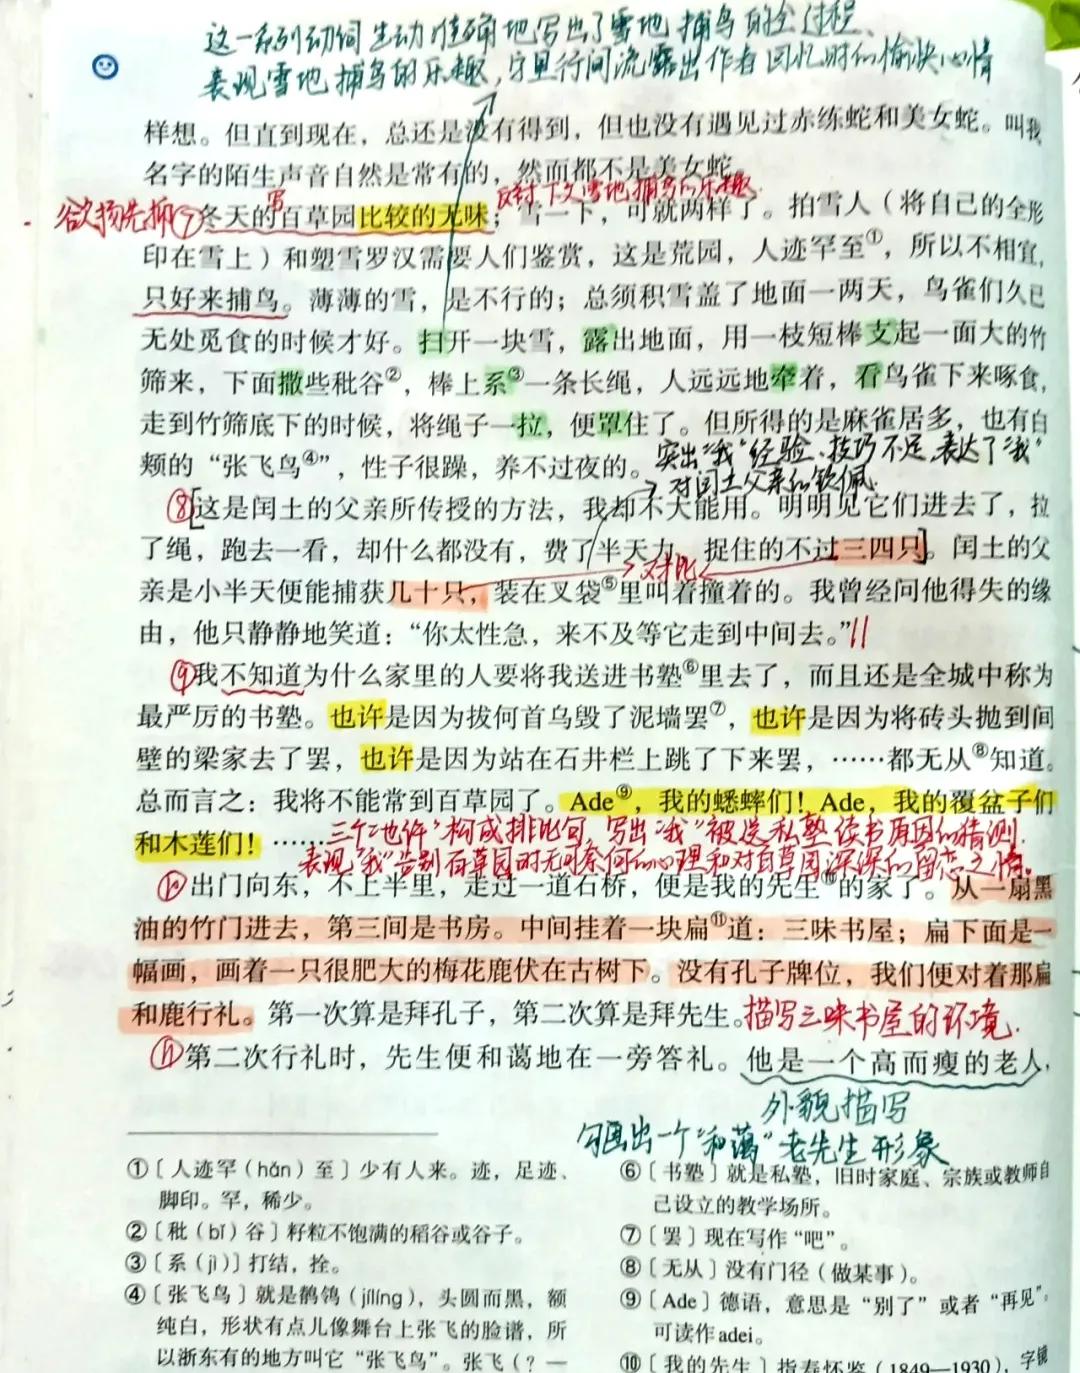 这一系列动词生动准确地写出了雪地捕鸟的全过程、
表现雪地捕鸟的乐趣,字里行间流露出作者回忆时的愉快心情
样想。但直到现在，总还是没有得到，但也没有遇见过赤练蛇和美女蛇。叫我
名字的陌生声音自然是常有的，然而都不是美女蛇。
写 反衬下文雪地捕鸟的乐趣.
欲扬先抑⑦冬天的百草园比较的无味；雪一下，可就两样了。拍雪人（将自己的全形
印在雪上）和塑雪罗汉需要人们鉴赏，这是荒园，人迹罕至①，所以不相宜，
只好来捕鸟。薄薄的雪，是不行的；总须积雪盖了地面一两天，鸟雀们久已
无处觅食的时候才好。扫开一块雪，露出地面，用一枝短棒支起一面大的竹
筛来，下面撒些秕谷②，棒上系③一条长绳，人远远地牵着，看鸟雀下来啄食，
走到竹筛底下的时候，将绳子一拉，便罩住了。但所得的是麻雀居多，也有白
颊的“张飞鸟④”，性子很躁，养不过夜的。
突出“我”经验、技巧不足,表达了“我”
对闰土父亲的钦佩.
⑧[这是闰土的父亲所传授的方法，我却不大能用。明明见它们进去了，拉
了绳，跑去一看，却什么都没有，费了半天力，捉住的不过三四只]。闰土的父
对比
亲是小半天便能捕获几十只，装在叉袋⑤里叫着撞着的。我曾经问他得失的缘
由，他只静静地笑道：“你太性急，来不及等它走到中间去。”
⑨我不知道为什么家里的人要将我送进书塾⑥里去了，而且还是全城中称为
最严厉的书塾。也许是因为拔何首乌毁了泥墙罢⑦，也许是因为将砖头抛到间
壁的梁家去了罢，也许是因为站在石井栏上跳了下来罢，……都无从⑧知道。
总而言之：我将不能常到百草园了。Ade⑨，我的蟋蟀们！Ade，我的覆盆子们
和木莲们！……
三个“也许”构成排比句,写出“我”被送私塾读书原因的猜测.
表现“我”告别百草园时无可奈何的心理和对百草园深深的留恋之情。
⑩出门向东，不上半里，走过一道石桥，便是我的先生⑩的家了。从一扇黑
油的竹门进去，第三间是书房。中间挂着一块扁⑪道：三味书屋；扁下面是一
幅画，画着一只很肥大的梅花鹿伏在古树下。没有孔子牌位，我们便对着那扁
和鹿行礼。第一次算是拜孔子，第二次算是拜先生。描写三味书屋的环境.
⑪第二次行礼时，先生便和蔼地在一旁答礼。他是一个高而瘦的老人，
外貌描写
勾画出一个“和蔼”老先生形象
①〔人迹罕（hǎn）至〕少有人来。迹，足迹、
脚印。罕，稀少。
②〔秕（bǐ）谷〕籽粒不饱满的稻谷或谷子。
③〔系（jì）〕打结，拴。
④〔张飞鸟〕就是鹡鸰（jílíng），头圆而黑，额
纯白，形状有点儿像舞台上张飞的脸谱，所
以浙东有的地方叫它“张飞鸟”。张飞（？—
⑥〔书塾〕就是私塾，旧时家庭、宗族或教师自
己设立的教学场所。
⑦〔罢〕现在写作“吧”。
⑧〔无从〕没有门径（做某事）。
⑨〔Ade〕德语，意思是“别了”或者“再见”，
可读作adei。
⑩〔我的先生〕指寿怀鉴（1849—1930），字镜